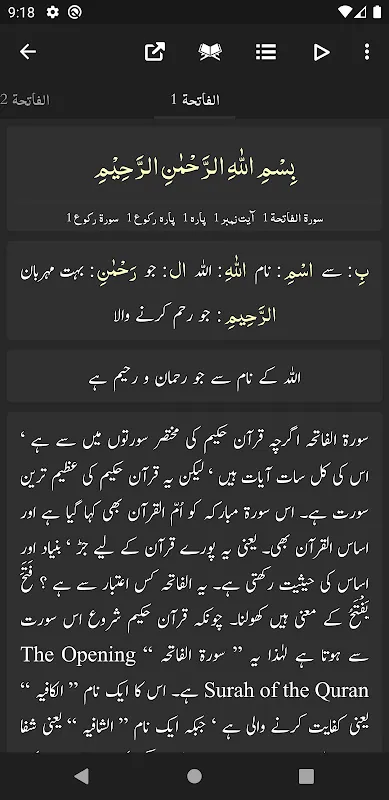 9:18
الفاتحة 1
الفاتحة 2
بِسْمِ اللّٰهِ الرَّحْمٰنِ الرَّحِيْمِ
سورة الفاتحة 1 آیت نمبر 1 پارہ 1 پارہ رکوع 1 سورة رکوع 1
بِ : سے اسْمِ : نام اللّٰهِ : اللہ ال : جو رَحْمٰنِ : بہت مہربان
الرَّحِيمِ : جو رحم کرنے والا
اللہ کے نام سے جو رحمان و رحیم ہے
سورۃ الفاتحہ اگرچہ قرآن حکیم کی مختصر سورتوں میں سے ہے ‘
اس کی کل سات آیات ہیں ‘ لیکن یہ قرآن حکیم کی عظیم ترین
سورت ہے۔ اس سورۃ مبارکہ کو اُمّ القرآن بھی کہا گیا ہے اور
اساس القرآن بھی۔ یعنی یہ پورے قرآن کے لیے جڑ ‘ بنیاد اور
اساس کی حیثیت رکھتی ہے۔ یہ الفاتحہ کس اعتبار سے ہے ؟ فَتَحَ
یَفْتَحُ کے معنی ہیں کھولنا۔ چونکہ قرآن حکیم شروع اس سورت
سے ہوتا ہے لہٰذا یہ ” سورۃ الفاتحہ “ The Opening
Surah of the Quran ہے۔ اس کا ایک نام ” الکافیہ “
یعنی کفایت کرنے والی ہے ‘ جبکہ ایک نام ” الشافیہ “ یعنی شفا